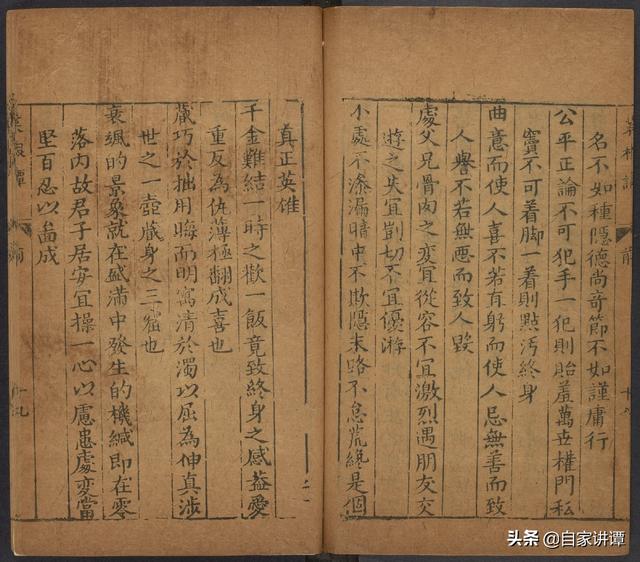 名不如種隱德尚奇節不如謹庸行
公平正論不可犯手一犯則貽羞萬世權門私
竇不可着脚一着則點汚終身
曲意而使人喜不若直躬而使人忌無善而致
人譽不若無惡而致人毀
處父兄骨肉之變宜從容不宜激烈遇朋友交
遊之失宜剴切不宜優游
小處不滲漏暗中不欺隱末路不怠荒終是個
真正英雄
千金難結一時之歡一飯竟致終身之感葢愛
重反為仇薄極翻成喜也
藏巧於拙用晦而明寓清於濁以屈為伸真涉
世之一壺藏身之三窟也
衰颯的景象就在盛滿中發生的機緘即在零
落內故君子居安宜操一心以慮患處變當
堅百忍以啚成
菜根譚
前
十九
头条 @自家讲谭